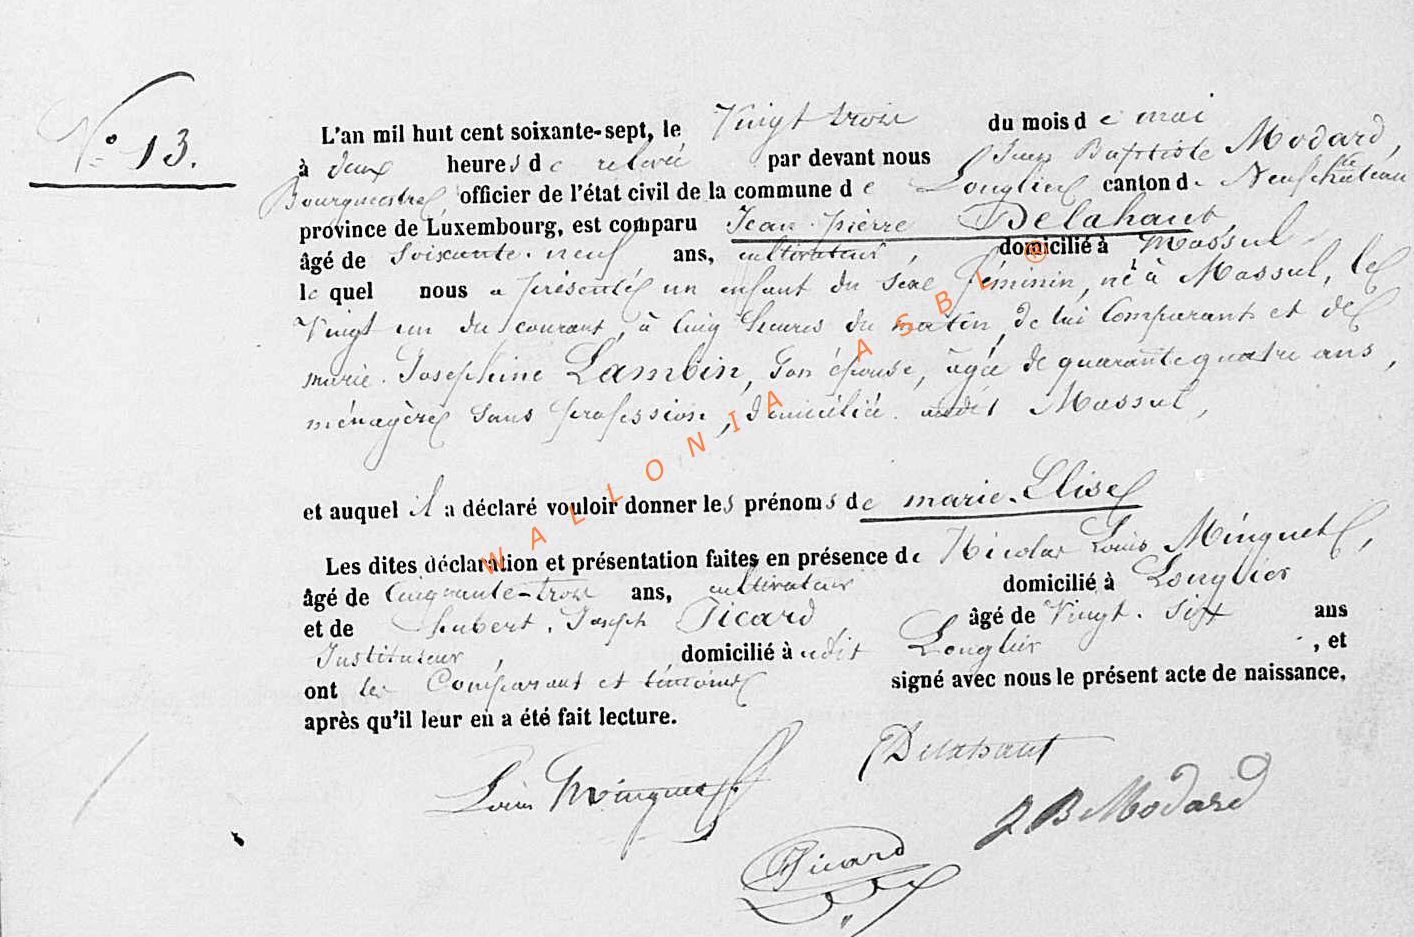 N° 13.
L'an mil huit cent soixante-sept, le Vingt trois du mois de mai
à deux heures de relevée par devant nous Jean Baptiste Modard,
Bourgmestre, officier de l'état civil de la commune de Longlier canton de Neufchâteau
province de Luxembourg, est comparu Jean-pierre Delahaut,
âgé de soixante-neuf ans, cultivateur, domicilié à Massul
lequel nous a présenté un enfant du sexe féminin, né à Massul, le
Vingt un du courant, à cinq heures du matin, de lui Comparant et de
marie-Josephine Lambin, son épouse, âgée de quarante quatre ans,
ménagère sans profession, domiciliée audit Massul,
et auquel il a déclaré vouloir donner les prénoms de marie-Elise
Les dites déclaration et présentation faites en présence de Nicolas Louis Minguet,
âgé de Cinquante-trois ans, cultivateur domicilié à Longlier
et de hubert-Joseph Picard, âgé de Vingt-sept ans
Instituteur, domicilié à udit Longlier, et
ont les Comparant et témoins signé avec nous le présent acte de naissance,
après qu'il leur en a été fait lecture.
Louis Minguet Delahaut
J B Modard
Picard
WALLONIA ASBL ®